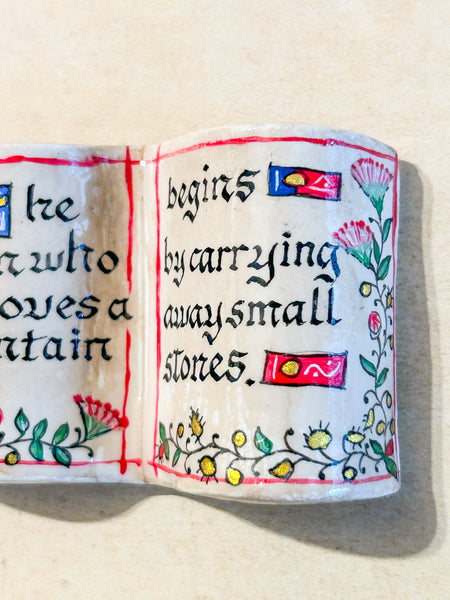 he
n who
oves a
ntain
begins
by carrying
away small
stones.